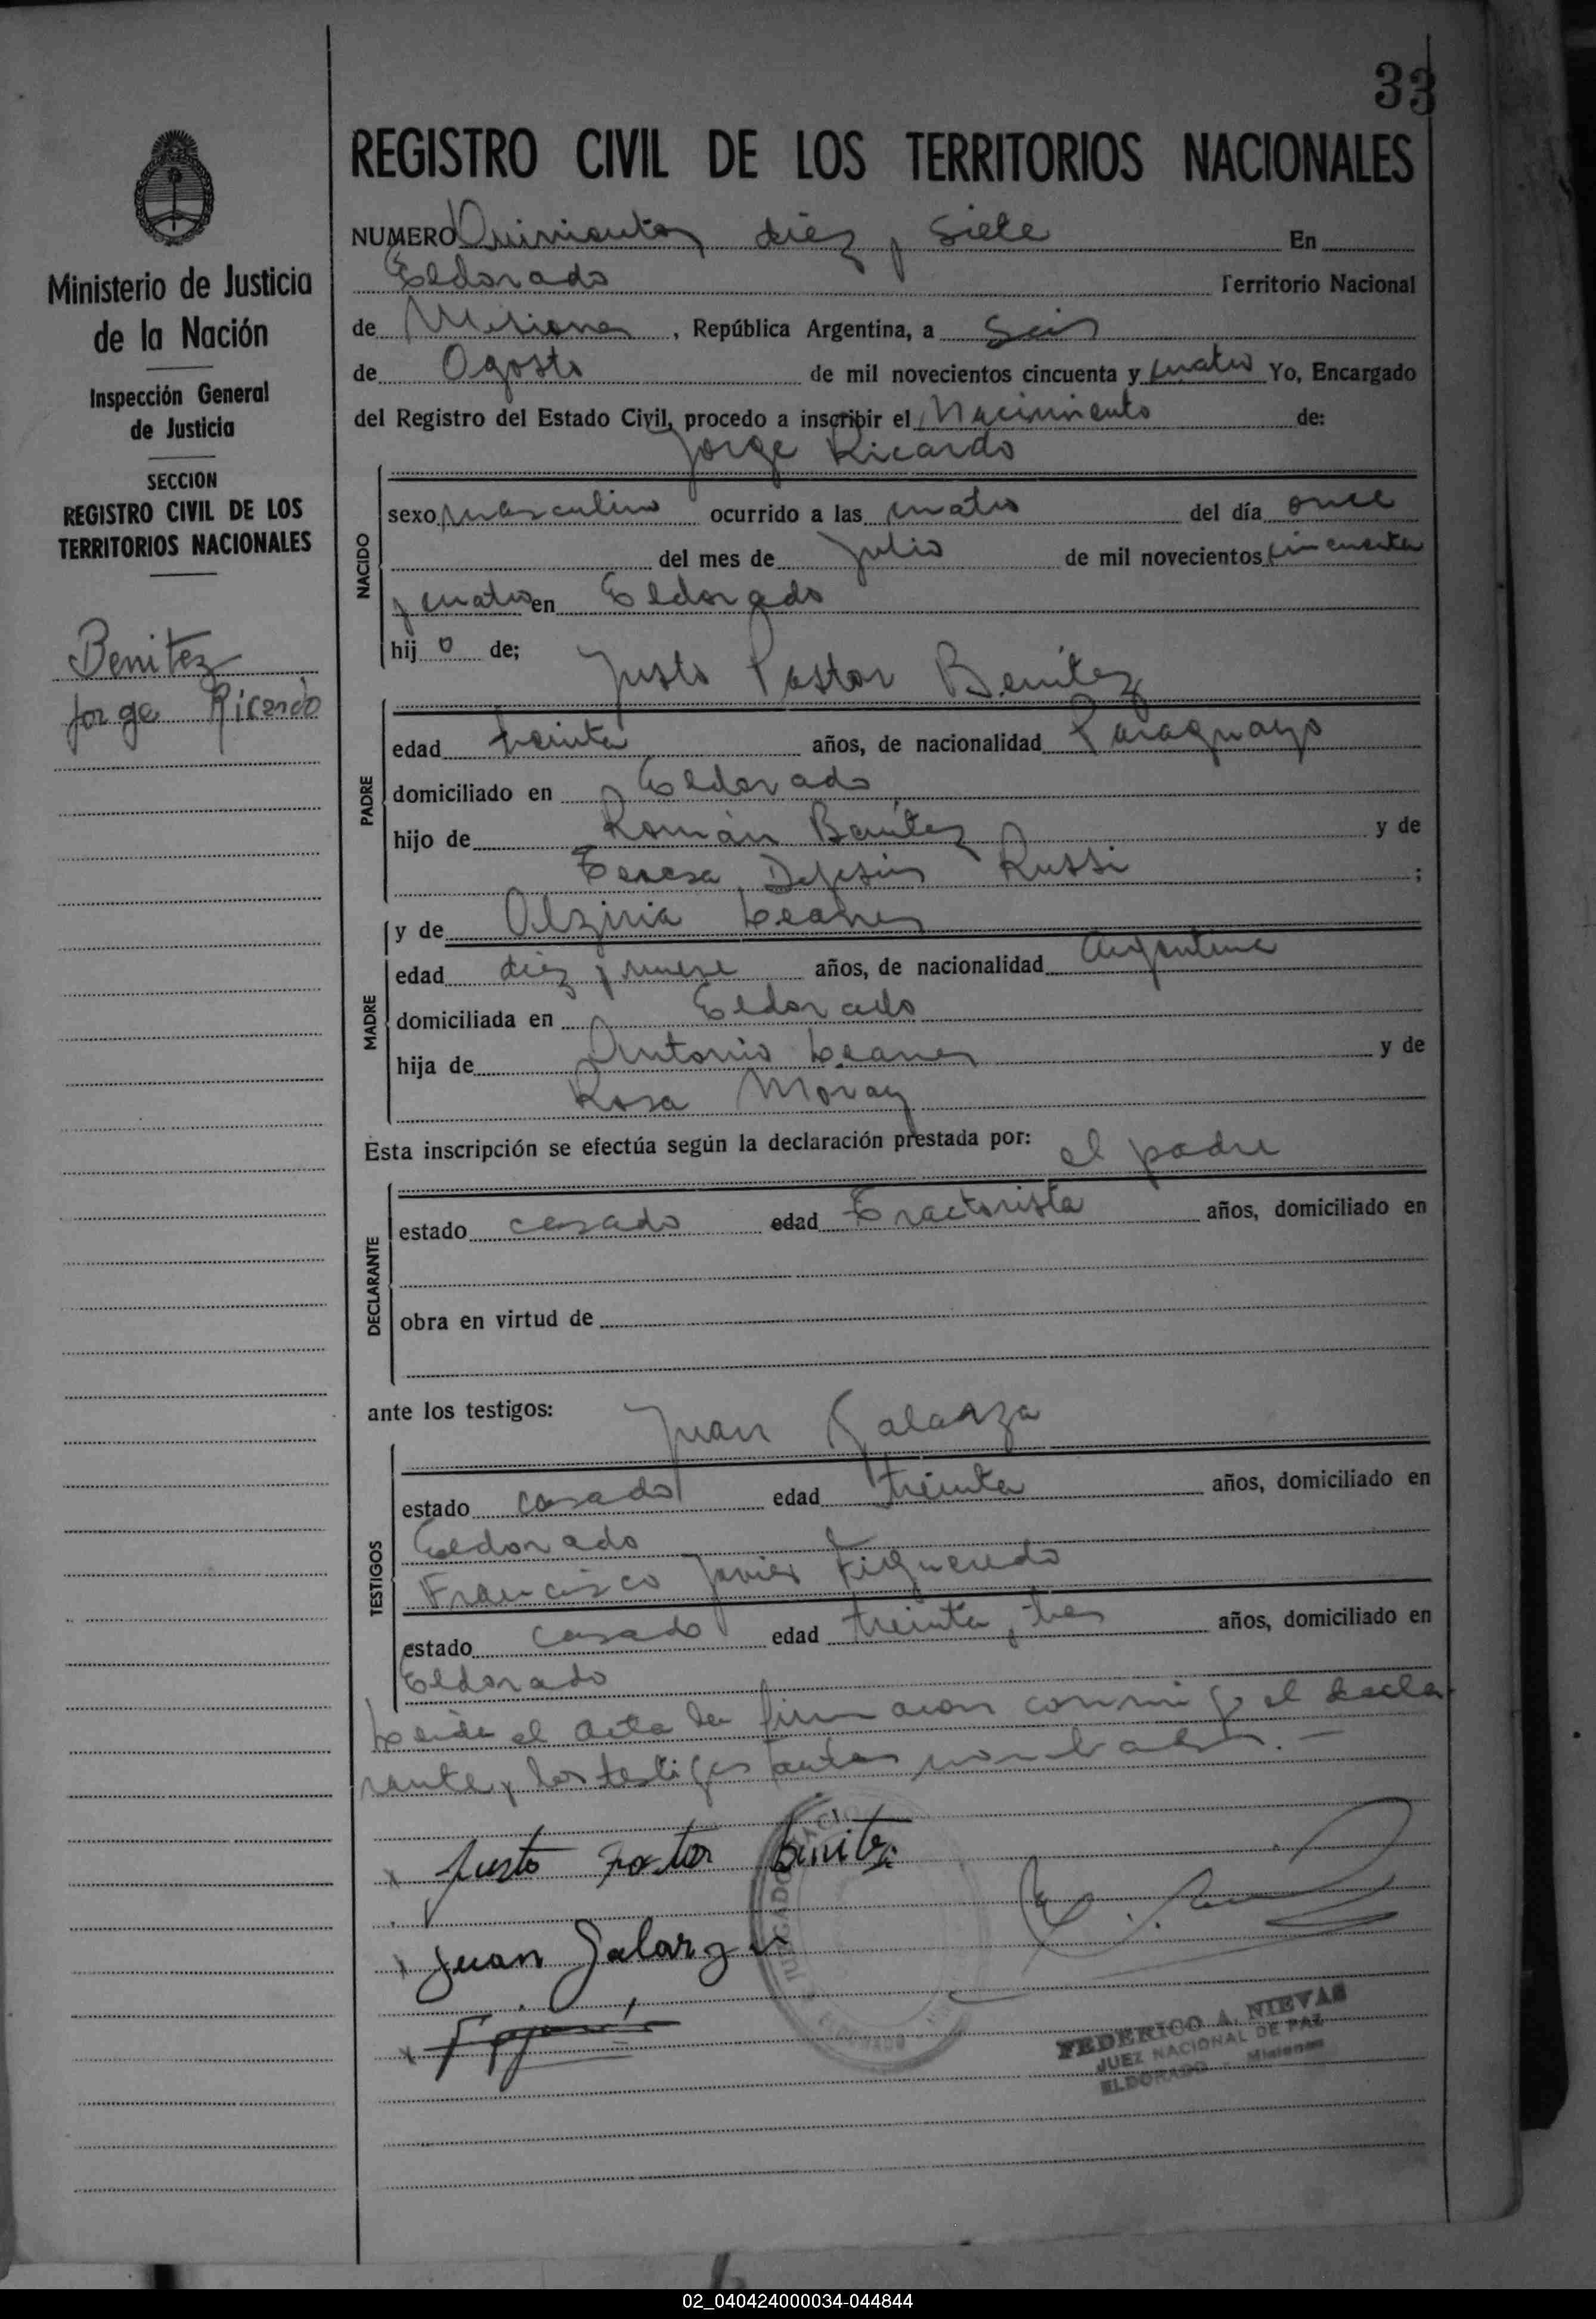 33
REGISTRO CIVIL DE LOS TERRITORIOS NACIONALES
Ministerio de Justicia
de la Nación
Inspección General
de Justicia
SECCION
REGISTRO CIVIL DE LOS
TERRITORIOS NACIONALES
Benitez
Jorge Ricardo
NUMERO Quinientos diez y siete En
Eldorado Territorio Nacional
de Misiones, República Argentina, a Seis
de Agosto de mil novecientos cincuenta y cuatro Yo, Encargado
del Registro del Estado Civil, procedo a inscribir el Nacimiento de:
Jorge Ricardo
NACIDO
sexo masculino ocurrido a las cuatro del día once
del mes de Julio de mil novecientos cincuenta
y cuatro en Eldorado
hij o de;
Justo Pastor Benítez
PADRE
edad treinta años, de nacionalidad Paraguayo
domiciliado en Eldorado
hijo de Román Benítez y de
Teresa Dejesús Russi ;
MADRE
y de Alziria
edad diez y nueve años, de nacionalidad Argentina
domiciliada en Eldorado
hija de Antonio y de
Rosa Moray
Esta inscripción se efectúa según la declaración prestada por: el padre
DECLARANTE
estado casado edad Tractorista años, domiciliado en
obra en virtud de
ante los testigos:
Juan Galarza
TESTIGOS
estado casado edad treinta años, domiciliado en
Eldorado
Francisco Javier Figueredo
estado casado edad treinta y tres años, domiciliado en
Eldorado
Leida el acta la firmaron conmigo el decla
rante y los testigos antes nombrados. —
x Justo Pastor Benitez
x Juan Galarza
x
JUZGADO
FEDERICO A. NIEVAS
JUEZ NACIONAL DE PAZ
ELDORADO - Misiones
02_040424000034-044844